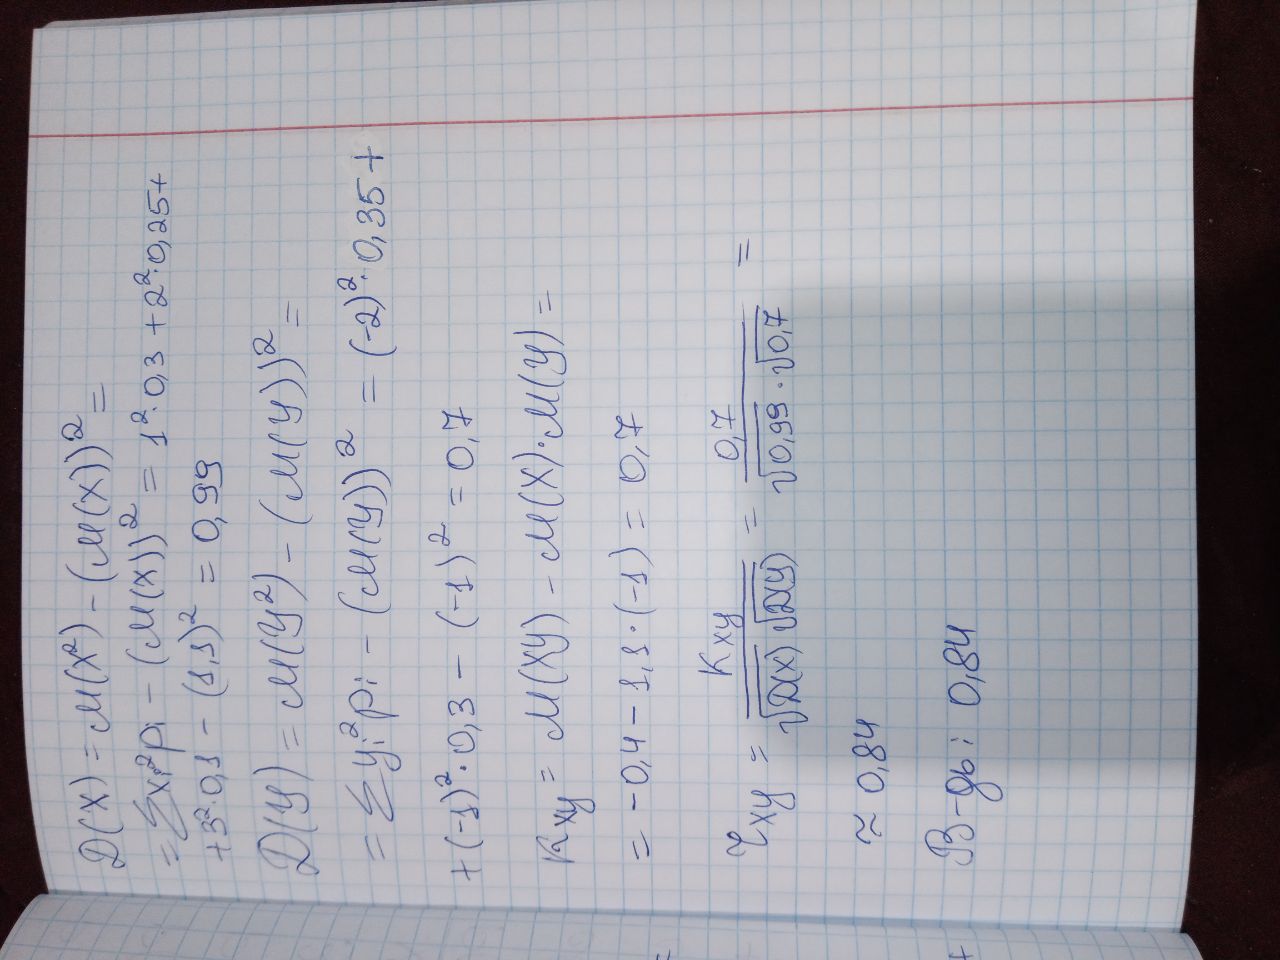 D(x) = M(x²) - (M(x))² =
= ∑xᵢ²pᵢ - (M(x))² = 1²·0,3 + 2²·0,25 +
+3²·0,1 - (1,1)² = 0,99
D(y) = M(y²) - (M(y))² =
= ∑yᵢ²pᵢ - (M(y))² = (-2)²·0,35 +
+(-1)²·0,3 - (-1)² = 0,7
Kxy = M(xy) - M(x)·M(y) =
= -0,4 - 1,1·(-1) = 0,7
rxy = Kxy / (√D(x) √D(y)) = 0,7 / (√0,99 · √0,7) =
≈ 0,84
В-дь: 0,84